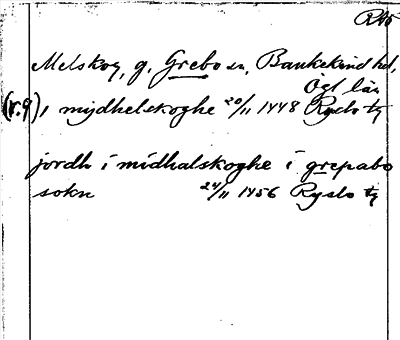 Melskog, g. Grebo sn, Bankekind hd,
Ögl län
(v.9) i mydhelskoghe 20/11 1448 Ryslo ty
jordh i midhalskoghe i grepabo
sokn 24/11 1456 Ryslo ty